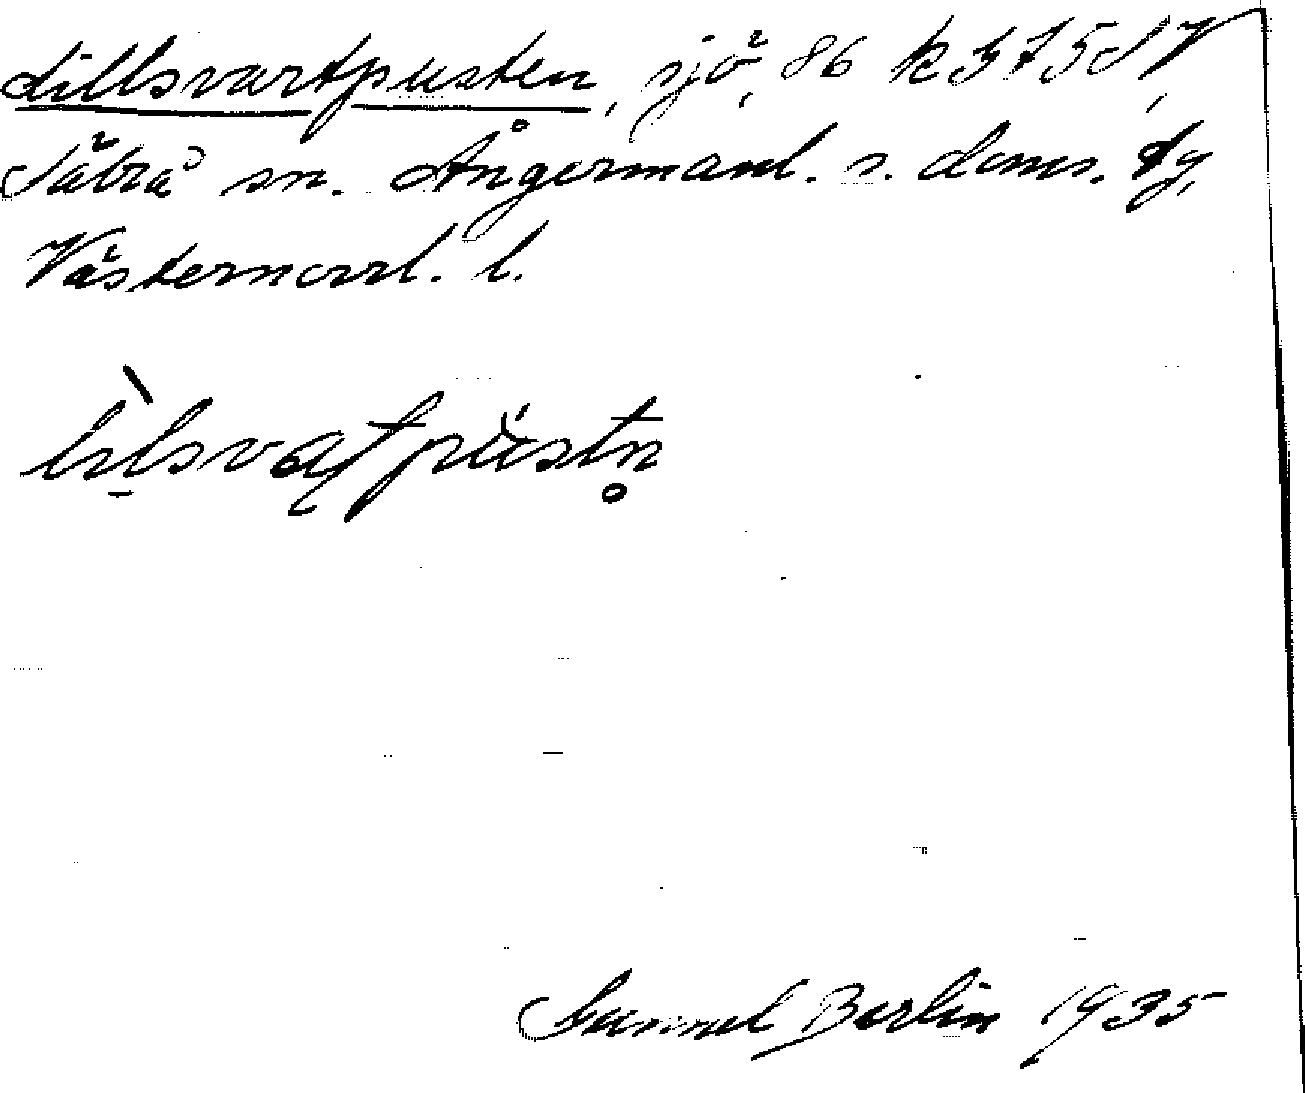 Lillsvartpusten, sjö, 86 k 575 d V,
Säbrå sn. Ångermanl. s. doms. tg,
Västernorrl. l.
lìlsvaʈpüstn̥
Gunnel Berlin 1935